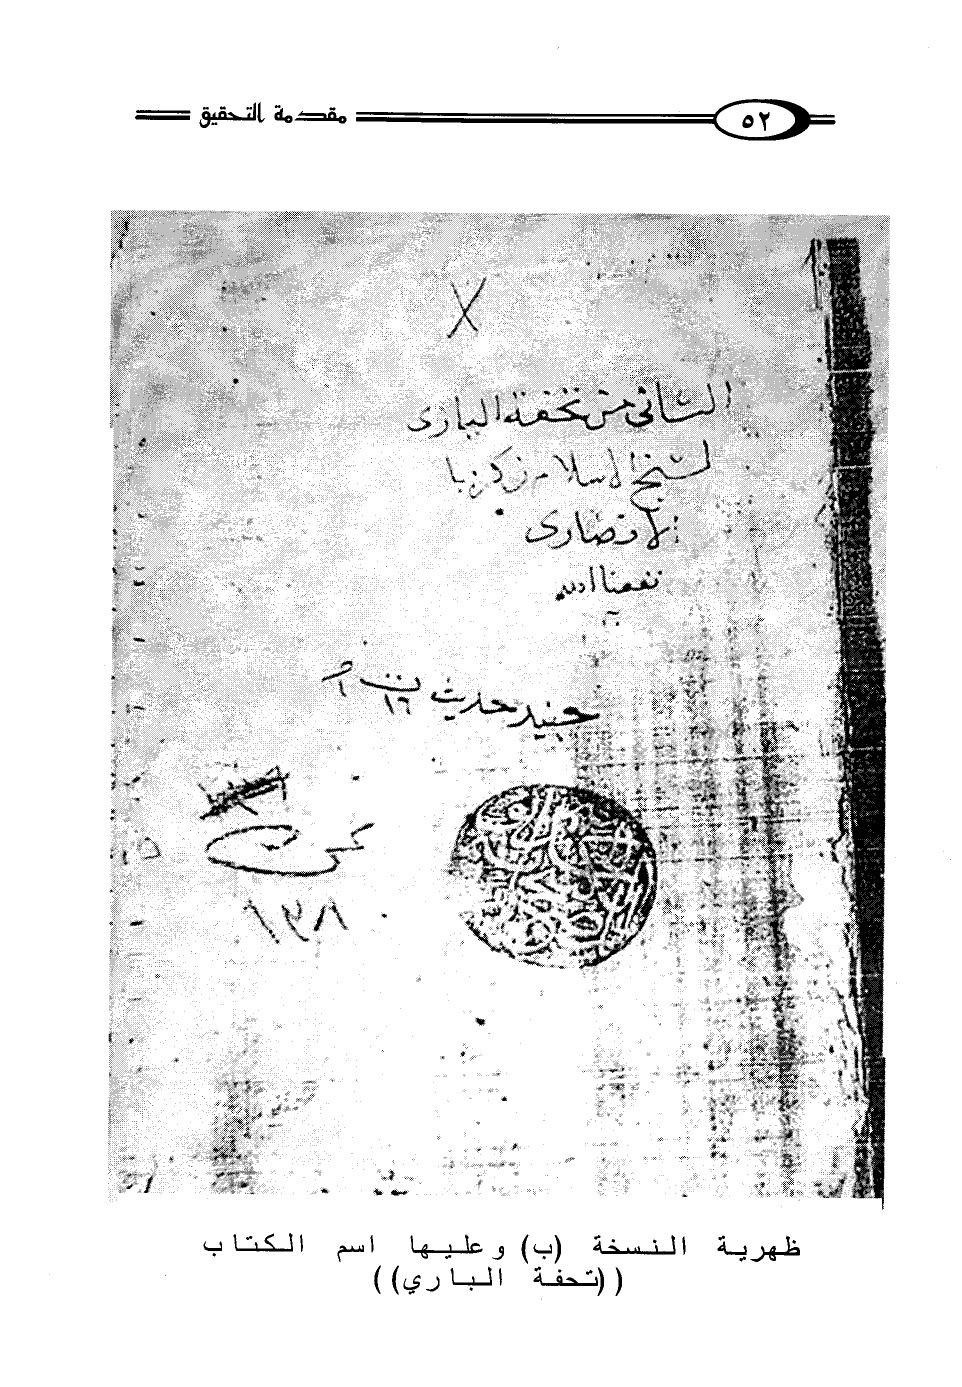 ٥٢ مقدمة التحقيق
الثانى من تحفة البارى
لشيخ الاسلام زكريا
الانصارى
نفعنا الله
به
حديث
١٦
١٣٨
ظهرية النسخة (ب) وعليها اسم الكتاب
((تحفة الباري))